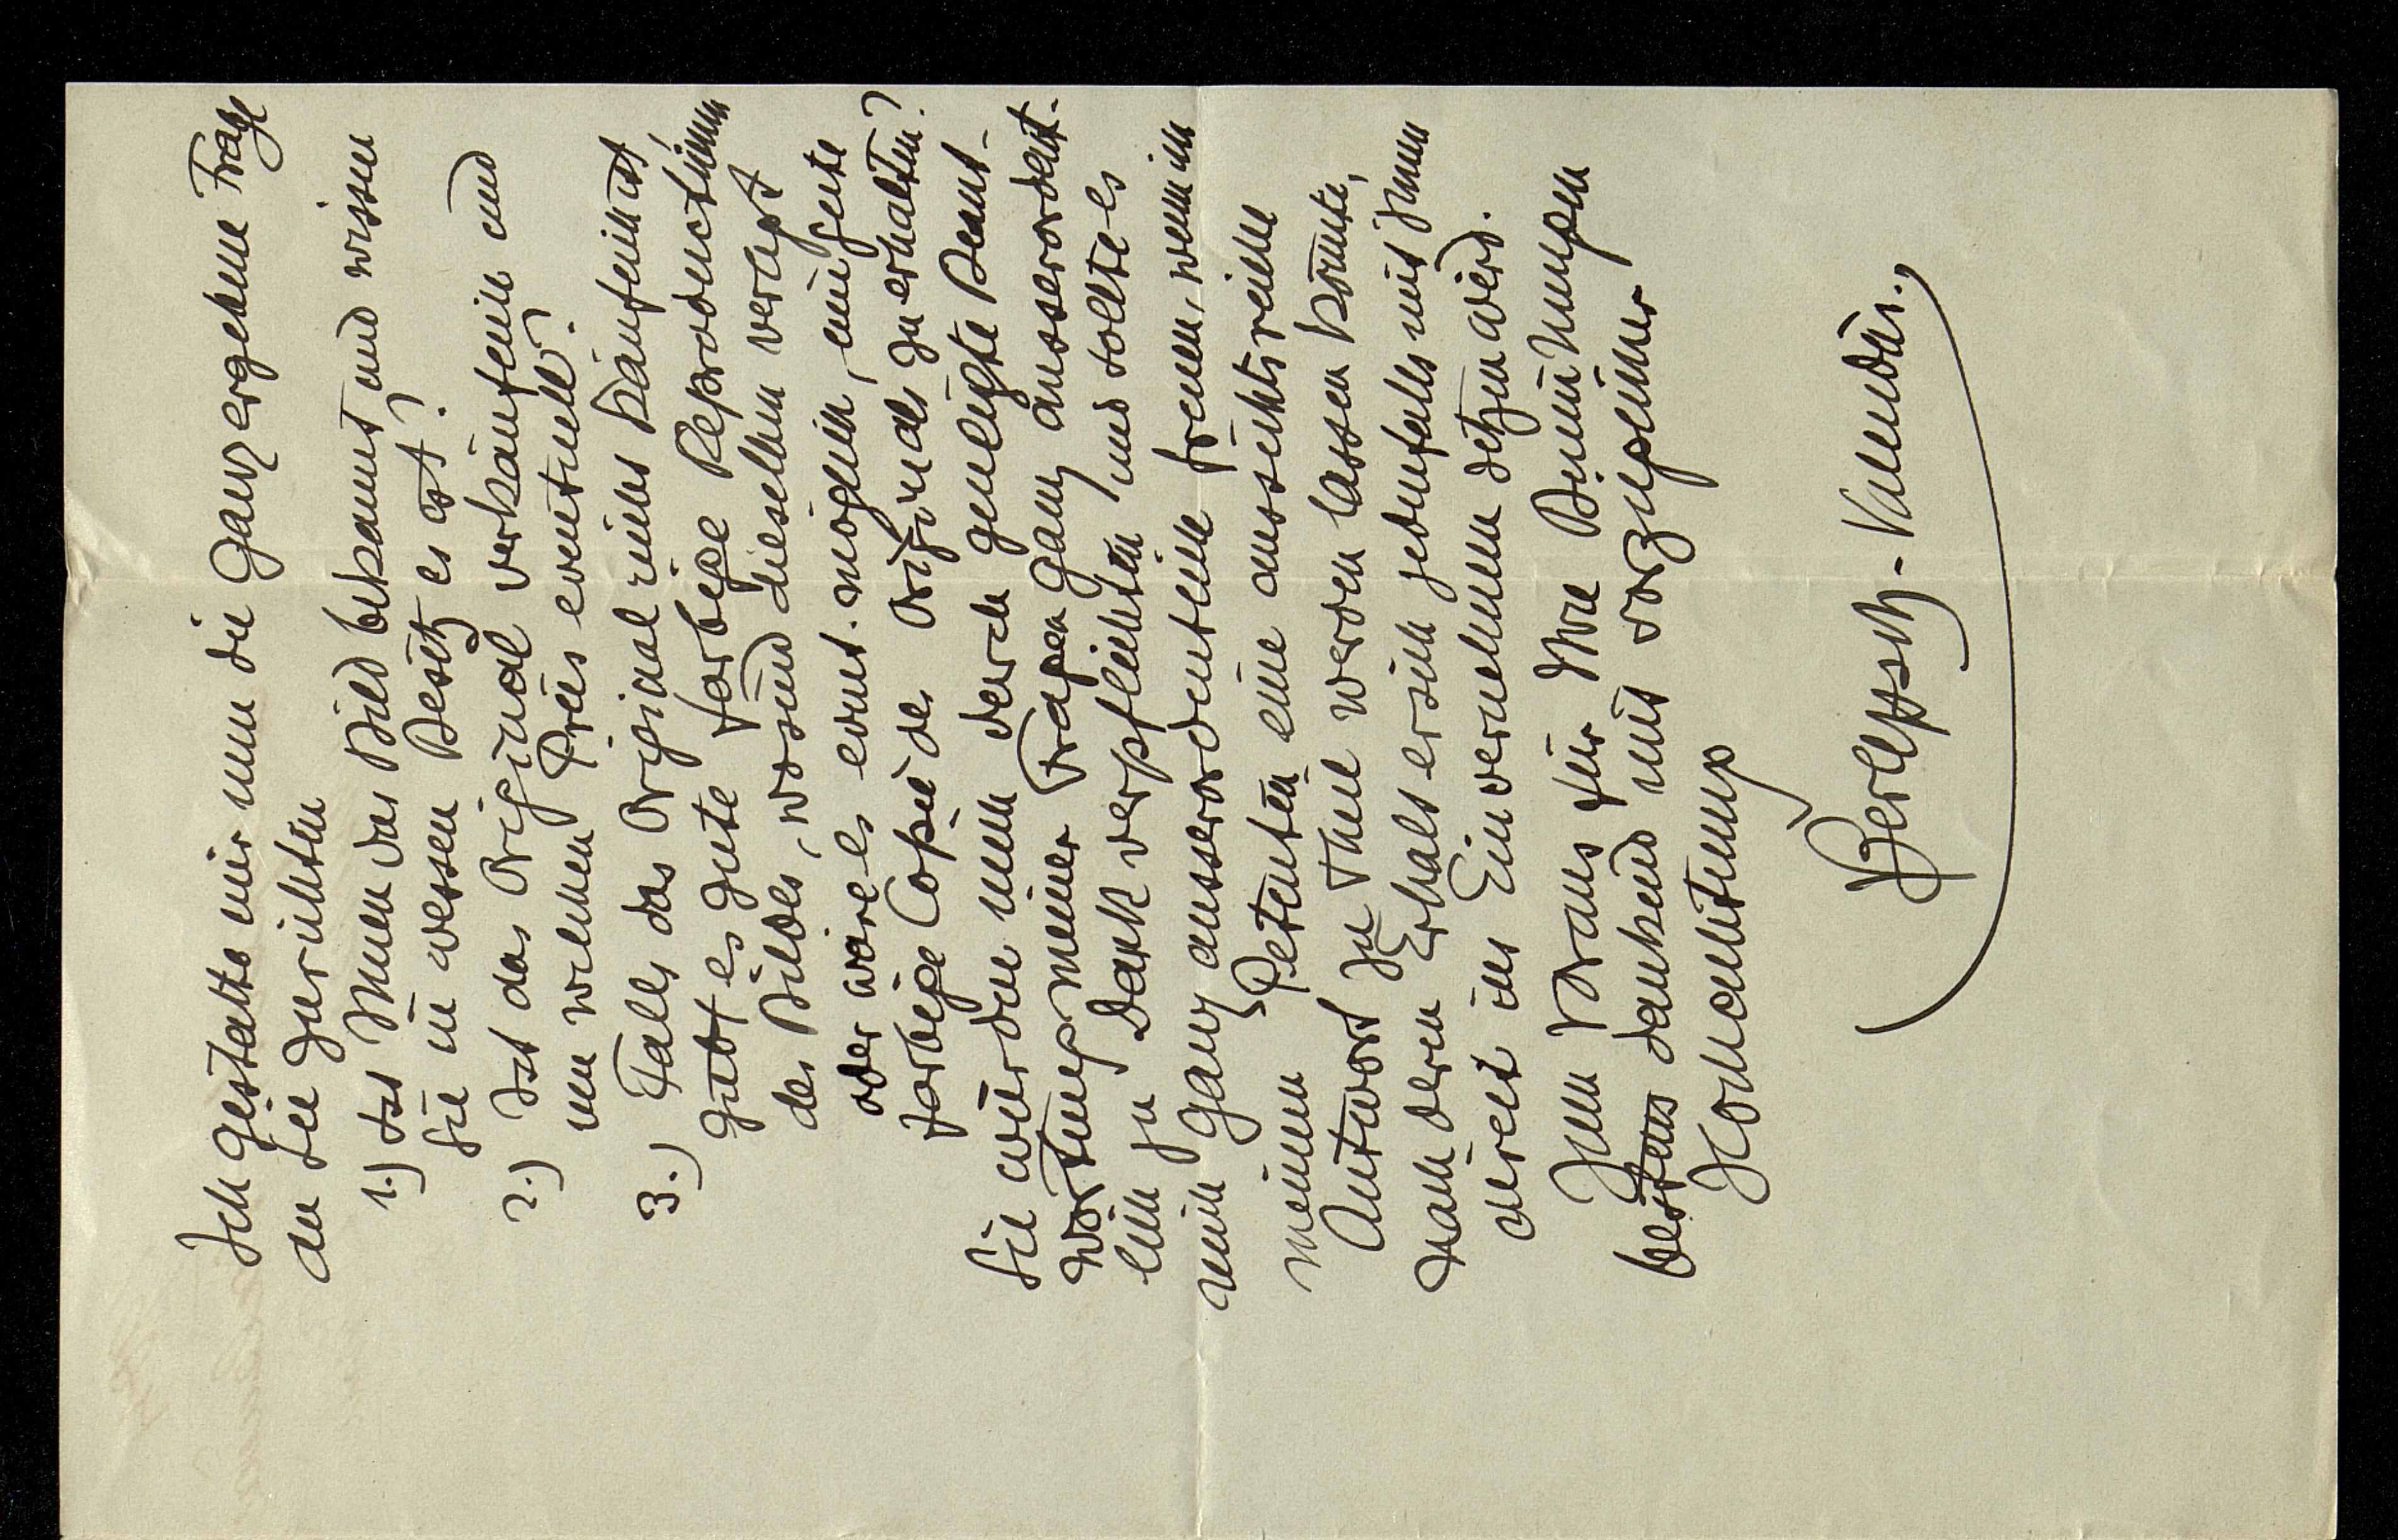 Ich gestatte mir nun die ganz ergebene Frage
an Sie zu richten
1.) Ist Ihnen das Bild bekannt und wissen
Sie in wessen Besitz es ist?
2.) Ist das Original verkäuflich und
um welchen Preis eventuell?
3.) Falls das Original nicht käuflich ist,
giebt es gute farbige Reproductionen
des Bildes, wo sind dieselben verlegt
oder wäre es event. möglich, eine gute
farbige Copie des Originales zu erhalten?
Sie würden mich durch geneigte Beant-
wortung meiner Fragen ganz ausserordent-
lich zu Dank verpflichten und sollte es
mich ganz ausserordentlich freuen, wenn ich
meinem Petenten eine aussichtsreiche
Antwort zu Theil werden lassen könnte,
nach deren Erhalt er sich jedenfalls mit Ihnen
direct ins Einvernehmen setzen wird.
Ihnen voraus für Ihre Bemühungen
bestens dankend mit vorzüglicher
Hochachtung
Berlepsch-Valendas.